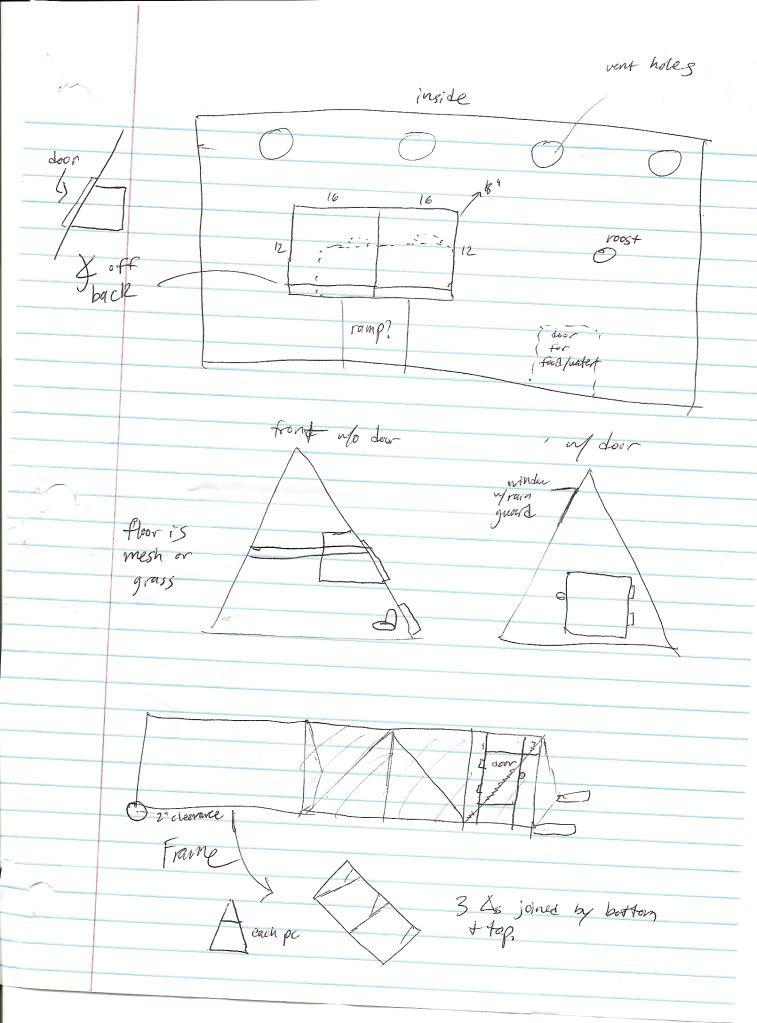 vent holes
inside
door
16
16
12
12
roost
off
back
ramp?
door
for
food/water
front w/o door
w/ door
window
w/ rain
guard
floor is
mesh or
grass
door
2" clearance
Frame
each pc
3 Δs joined by bottom
+ top.